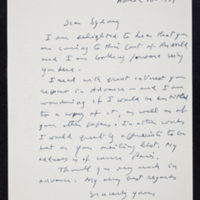 Dear Sydney
I am delighted to hear that you
are coming to this part of the world
and I am looking forward seeing
you here.
I read with great interest your
report in Advance — and I am
wondering if I would be entitled
to a copy of it, as well as of
your other papers. In other words
I would greatly appreciate to be
put on your mailing list. My
address is of course, Paris.
Thank you very much in
advance. My very best regards
Sincerely yours